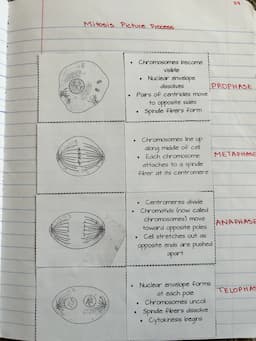 Mitosis Picture Process
Chromosomes become
visible
Nuclear envelope
dissolves
Pairs of centrioles move
to opposite sides
Spindle fibers form
PROPHASE
Chromosomes line up
along middle of cell
Each chromosome
attaches to a spindle
fiber at its centromere
METAPHASE
Centromeres divide
Chromatids (now called
chromosomes) move
toward opposite poles
Cell stretches out as
opposite ends are pushed
apart
ANAPHASE
Nuclear envelope forms
at each pole
Chromosomes uncoil
Spindle fibers dissolve
Cytokinesis begins
TELOPHAS